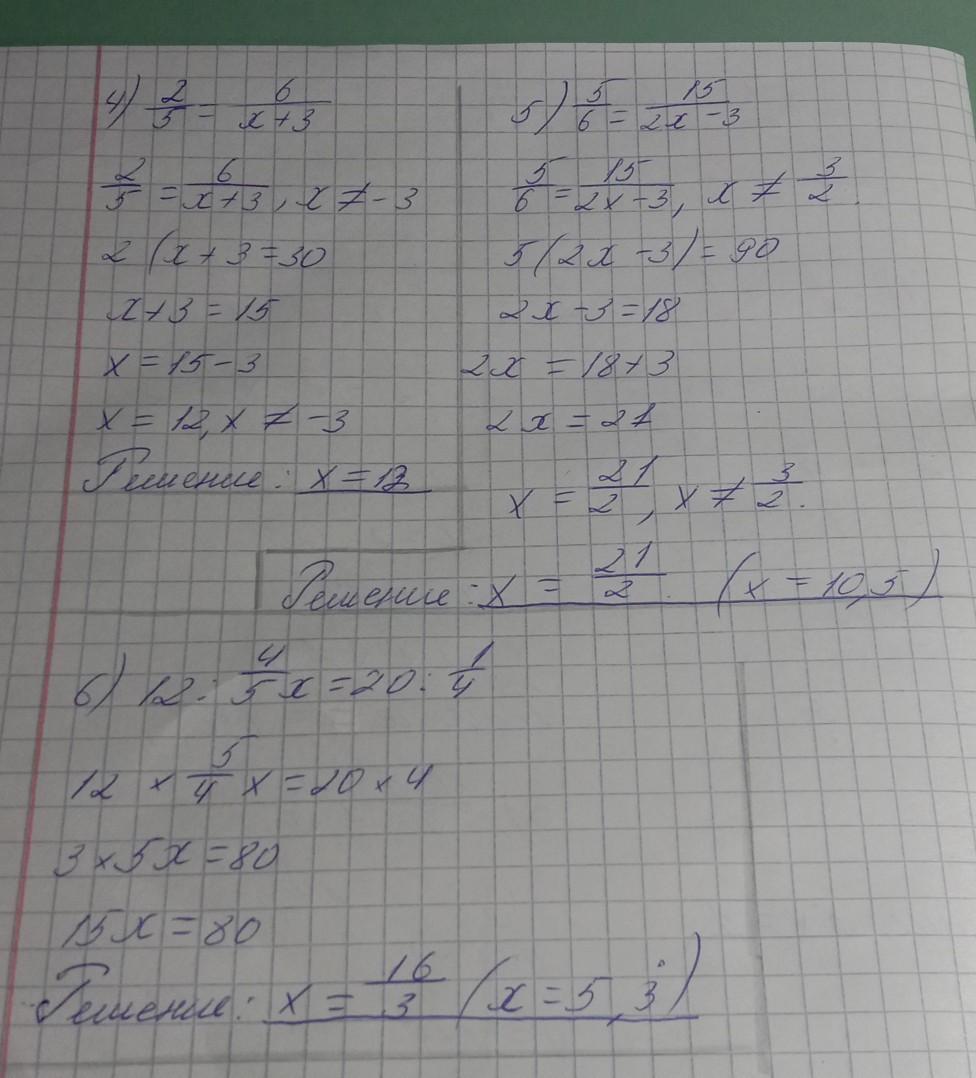 4) 2/5 = 6/x+3
2/5 = 6/x+3, x ≠ -3
2 (x+3=30
x+3=15
x=15-3
x=12, x ≠ -3
Решение: x=12
5) 5/6 = 15/2x-3
5/6 = 15/2x-3, x ≠ 3/2.
5(2x-3)=90
2x-3=18
2x=18+3
2x=21
x = 21/2, x ≠ 3/2.
Решение: x = 21/2. (x=10,5)
6) 12: 4/5 x=20: 1/4
12 × 5/4 x=20×4
3×5x=80
15x=80
Решение: x = 16/3 (x=5,3̇)